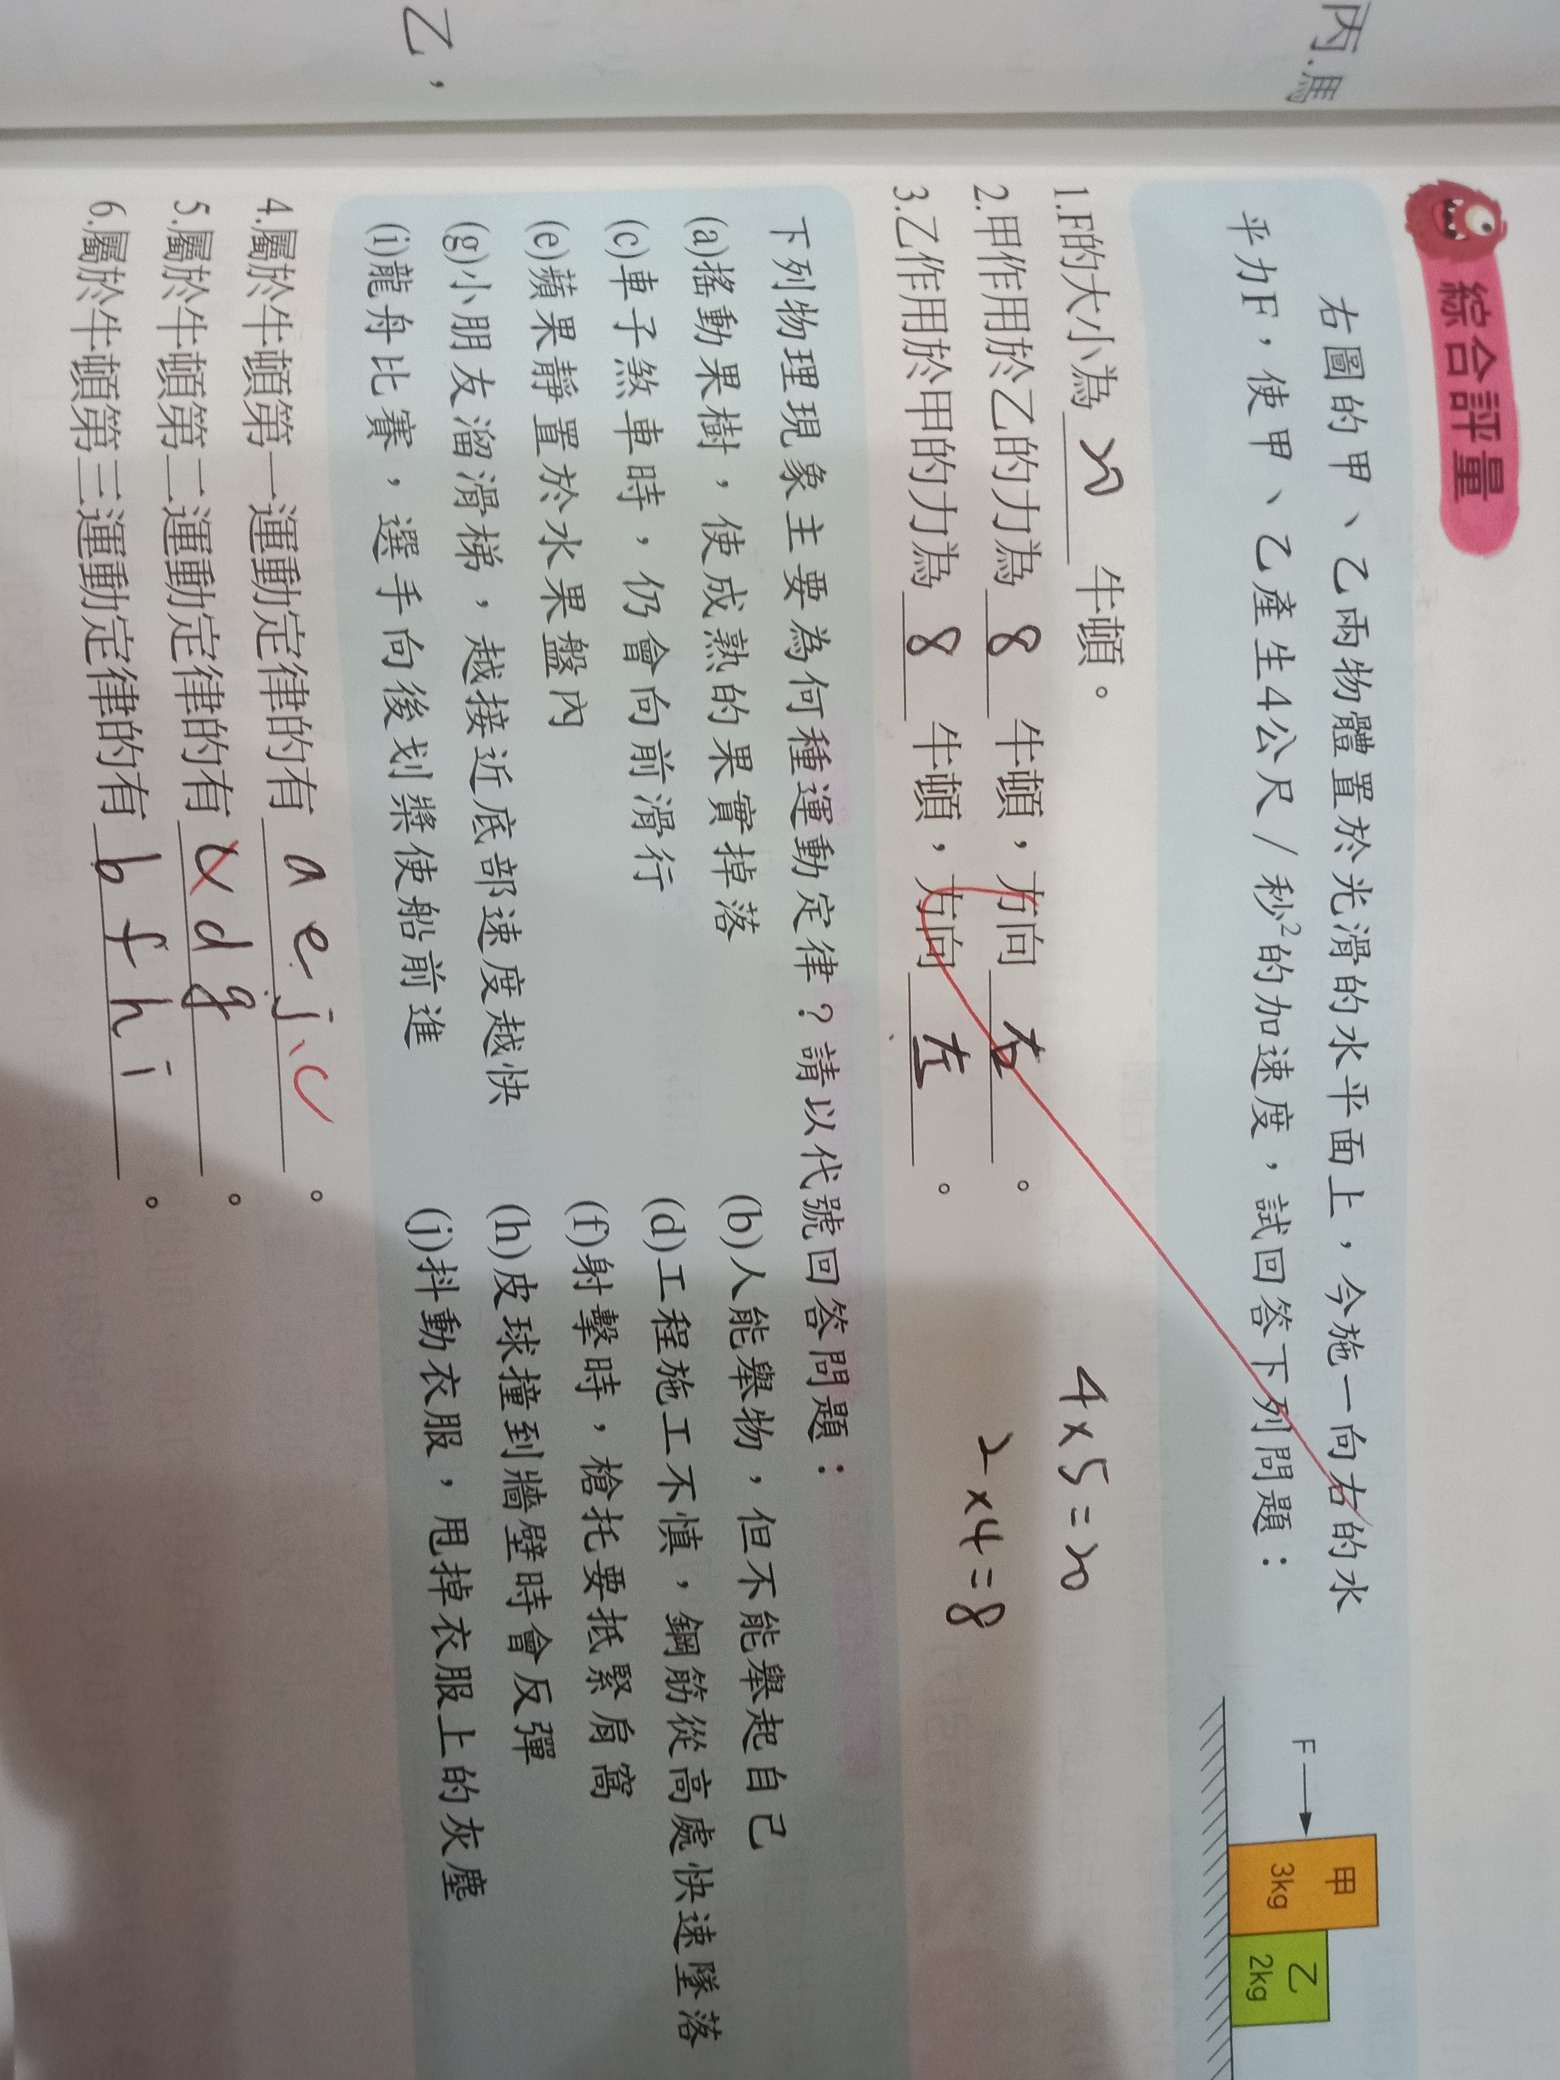 丙.馬
乙，
綜合評量
右圖的甲、乙兩物體置於光滑的水平面上，今施一向右的水
平力F，使甲、乙產生4公尺／秒²的加速度，試回答下列問題：
F
甲
3kg
乙
2kg
1.F的大小為 20 牛頓。
4×5=20
2.甲作用於乙的力為 8 牛頓，方向 右 。
2×4=8
3.乙作用於甲的力為 8 牛頓，方向 左 。
下列物理現象主要為何種運動定律？請以代號回答問題：
(a)搖動果樹，使成熟的果實掉落
(b)人能舉物，但不能舉起自己
(c)車子煞車時，仍會向前滑行
(d)工程施工不慎，鋼筋從高處快速墜落
(e)蘋果靜置於水果盤內
(f)射擊時，槍托要抵緊肩窩
(g)小朋友溜滑梯，越接近底部速度越快
(h)皮球撞到牆壁時會反彈
(i)龍舟比賽，選手向後划槳使船前進
(j)抖動衣服，甩掉衣服上的灰塵
4.屬於牛頓第一運動定律的有 a e j、c 。
5.屬於牛頓第二運動定律的有 c d g 。
6.屬於牛頓第三運動定律的有 b f h i 。